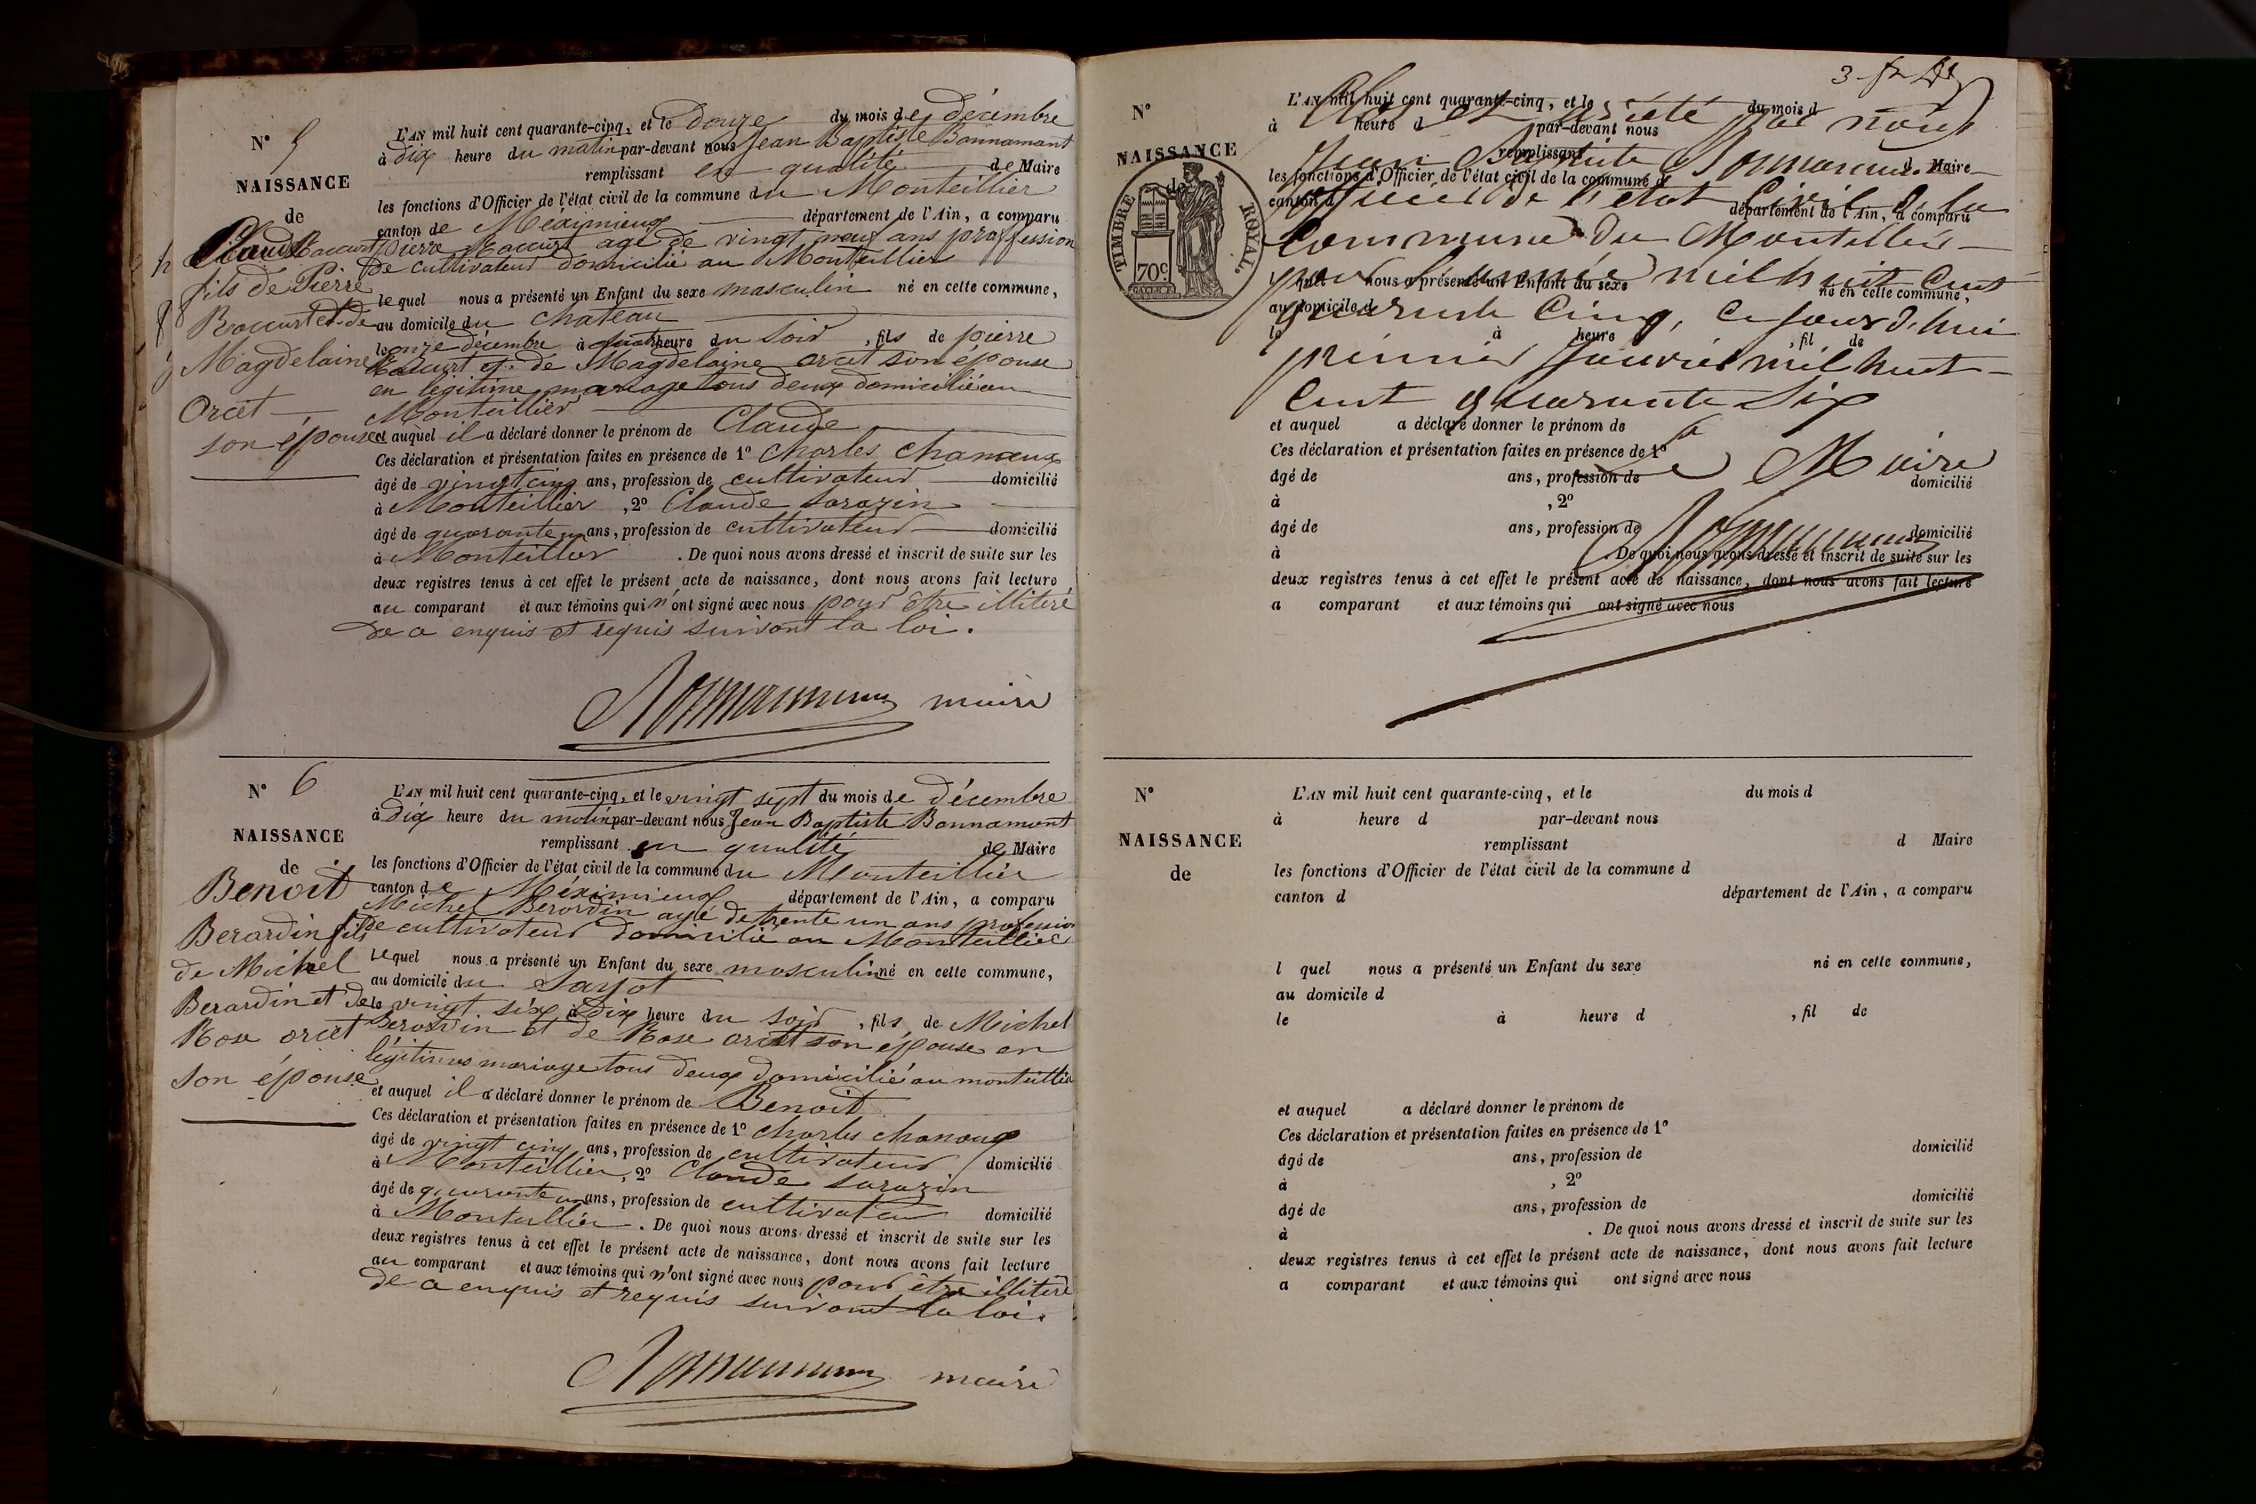 N° 5
NAISSANCE
de
Claude Raccurt
fils de Pierre
Raccurt et de
Magdelaine
Orcet
son épouse
L'AN mil huit cent quarante-cinq, et le douze du mois de décembre
à dix heure du matin par-devant nous Jean Baptiste Bonnamant
remplissant en qualité de Maire
les fonctions d'Officier de l'état civil de la commune du Monteillier
canton de Meximieux département de l'Ain, a comparu
Pierre Raccurt agé de vingt neuf ans proffession
de cultivateur domicilié au Monteillier
lequel nous a présenté un Enfant du sexe masculin né en cette commune,
au domicile du chateau
le onze décembre à quatre heure du soir, fils de pierre
Raccurt et de Magdelaine orcet son épouse
en legitime mariage tous deux domicilié au
Monteillier
et auquel il a déclaré donner le prénom de Claude
Ces déclaration et présentation faites en présence de 1° Charles Chanoux
âgé de vingt cinq ans, profession de cultivateur domicilié
à Monteillier, 2° Claude Sarazin
âgé de quarante un ans, profession de cultivateur domicilié
à Monteillier. De quoi nous avons dressé et inscrit de suite sur les
deux registres tenus à cet effet le présent acte de naissance, dont nous avons fait lecture
au comparant et aux témoins qui n'ont signé avec nous pour être illiteré
de a enquis et requis suivant la loi.
Bonnamant maire
N° 6
NAISSANCE
de
Benoit
Berardin fils
de Michel
Berardin et de
Rose orcet
son épouse
L'AN mil huit cent quarante-cinq, et le vingt sept du mois de décembre
à dix heure du matin par-devant nous Jean Baptiste Bonnamant
remplissant en qualité de Maire
les fonctions d'Officier de l'état civil de la commune du Monteillier
canton de Méximieux département de l'Ain, a comparu
Michel Berardin agé de trente un ans profession
de cultivateur domicilié au Monteillier
Lequel nous a présenté un Enfant du sexe masculin né en cette commune,
au domicile du
le vingt six à dix heure du soir, fils de Michel
Berardin et de Rose orcet son épouse en
légitimes mariage tous deux domicilié au monteillier
et auquel il a déclaré donner le prénom de Benoit
Ces déclaration et présentation faites en présence de 1° Charles Chanoux
âgé de vingt cinq ans, profession de cultivateur domicilié
à Monteillier, 2° Claude Sarazin
âgé de quarante un ans, profession de cultivateur domicilié
à Monteillier. De quoi nous avons dressé et inscrit de suite sur les
deux registres tenus à cet effet le présent acte de naissance, dont nous avons fait lecture
au comparant et aux témoins qui n'ont signé avec nous pour être illiteré
de a enquis et requis suivant la loi.
Bonnamant maire
3
N°
NAISSANCE
de
TIMBRE ROYAL.
70c
L'AN mil huit cent quarante-cinq, et le du mois d
Clos et arrété par nous
à heure d par-devant nous
remplissant d Maire
Jean Baptiste Bonnamant Maire
les fonctions d'Officier de l'état civil de la commune d
officier de l'état Civil de la
canton d département de l'Ain, a comparu
Commune du Monteillier
l quel nous a présenté un Enfant du sexe né en cette commune,
pour l'année mil huit cent
au domicile d
quarante Cinq, ce jourd'hui
le à heure d, fil de
premier Janvier mil huit
Cent quarante Six
et auquel a déclaré donner le prénom de
Ces déclaration et présentation faites en présence de 1°
Le Maire
âgé de ans, profession de domicilié
à, 2°
âgé de ans, profession de domicilié
Bonnamant
à. De quoi nous avons dressé et inscrit de suite sur les
deux registres tenus à cet effet le présent acte de naissance, dont nous avons fait lecture
a comparant et aux témoins qui ont signé avec nous
N°
NAISSANCE
de
L'AN mil huit cent quarante-cinq, et le du mois d
à heure d par-devant nous
remplissant d Maire
les fonctions d'Officier de l'état civil de la commune d
canton d département de l'Ain, a comparu
l quel nous a présenté un Enfant du sexe né en cette commune,
au domicile d
le à heure d, fil de
et auquel a déclaré donner le prénom de
Ces déclaration et présentation faites en présence de 1°
âgé de ans, profession de domicilié
à, 2°
âgé de ans, profession de domicilié
à. De quoi nous avons dressé et inscrit de suite sur les
deux registres tenus à cet effet le présent acte de naissance, dont nous avons fait lecture
a comparant et aux témoins qui ont signé avec nous